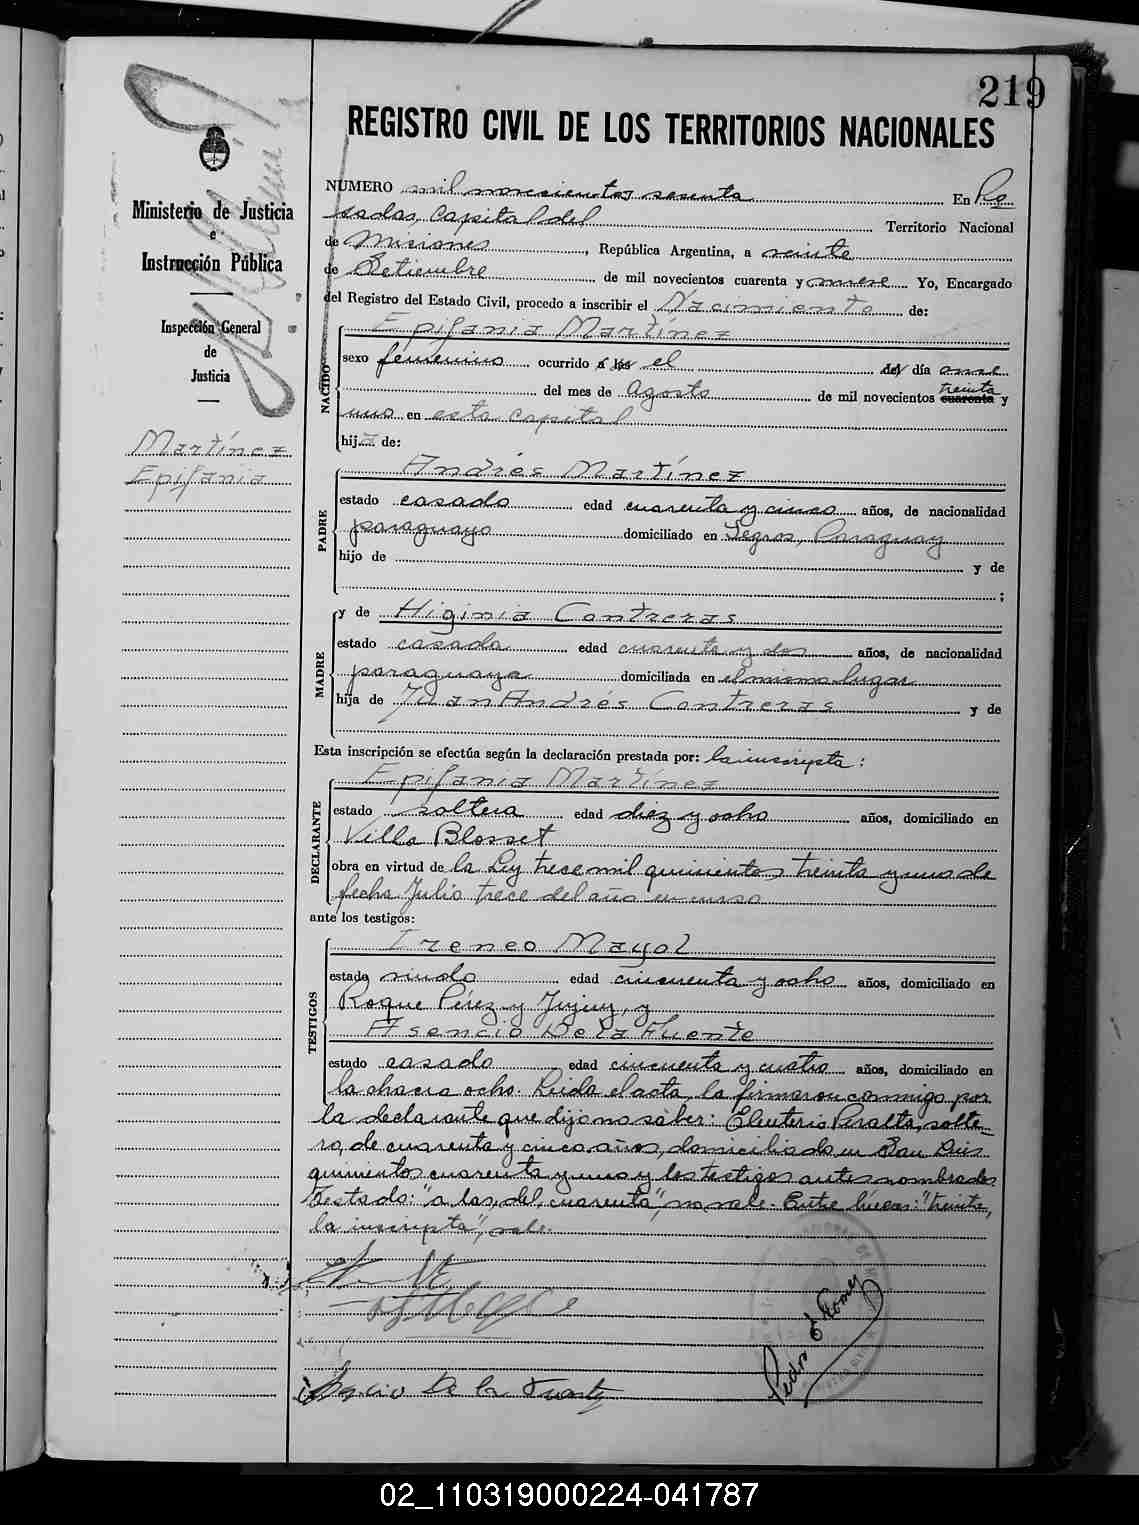 219
REGISTRO CIVIL DE LOS TERRITORIOS NACIONALES
Ministerio de Justicia
e
Instrucción Pública
Inspección General
de
Justicia
Martínez
Epifania
NUMERO mil novecientos sesenta En Po
sadas, Capital del Territorio Nacional
de Misiones, República Argentina, a veinte
de Setiembre de mil novecientos cuarenta y nueve Yo, Encargado
del Registro del Estado Civil, procedo a inscribir el Nacimiento de:
NACIDO
Epifania Martínez
sexo femenino ocurrido á las el del día once
del mes de Agosto de mil novecientos cuarenta treinta y
uno en esta capital
hija de:
PADRE
Andrés Martínez
estado casado edad cuarenta y cinco años, de nacionalidad
paraguayo domiciliado en Paraguay
hijo de y de
;
MADRE
y de Higinia Contreras
estado casada edad cuarenta y dos años, de nacionalidad
paraguaya domiciliada en el mismo lugar
hija de Juan Andrés Contreras y de
Esta inscripción se efectúa según la declaración prestada por: la inscripta:
DECLARANTE
Epifania Martínez
estado soltera edad diez y ocho años, domiciliado en
Villa Blosset
obra en virtud de la Ley trece mil quinientos treinta y uno de
fecha Julio trece del año en curso
ante los testigos:
TESTIGOS
Ireneo Mayol
estado viudo edad cincuenta y ocho años, domiciliado en
Roque Pérez y Jujuy, y
Asencio De la Fuente
estado casado edad cincuenta y cuatro años, domiciliado en
la chacra ocho. Leida el acta, la firmaron conmigo por
la declarante que dijo no saber: Eleuterio Peralta, solte-
ro, de cuarenta y cinco años, domiciliado en San Luis
quinientos cuarenta y uno y los testigos antes nombrados
Testado: "a las, del, cuarenta", no vale. Entre líneas: "treinta,
la inscripta", vale.
De la Fuente
Pedro E Gomez
02_110319000224-041787